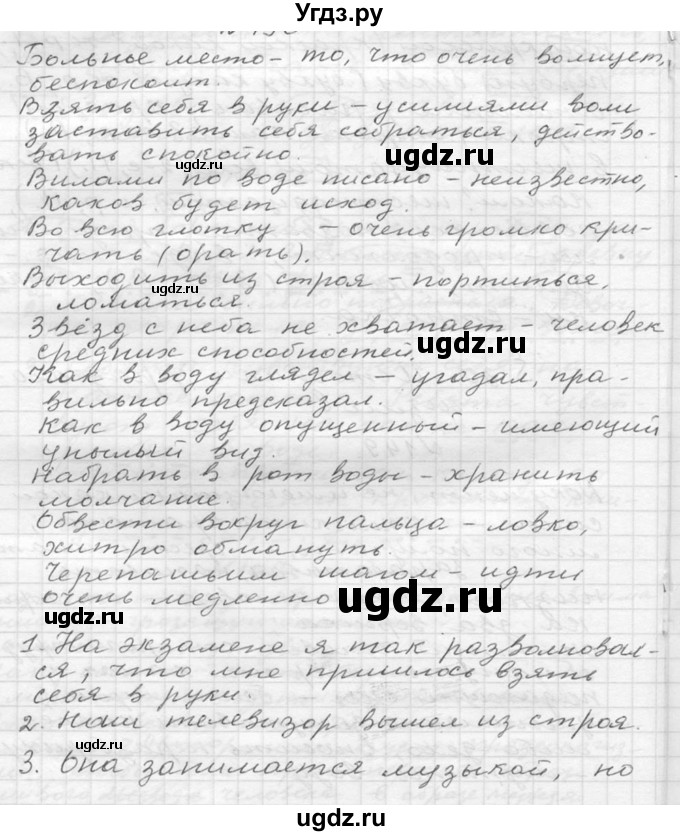 Угдз.ру
Больные место - то, что очень волнует,
беспокоит.
Взять себя в руки - усилиями воли
заставить себя собраться, действо-
вать спокойно.
Вилами по воде писано - неизвестно,
каков будет исход.
Во всю глотку - очень громко кри-
чать (орать).
Выходить из строя - портиться,
ломаться.
Звёзд с неба не хватает - человек
средних способностей.
Как в воду глядел - угадал, пра-
вильно предсказал.
Как в воду опущенный - имеющий
унылый вид.
Набрать в рот воды - хранить
молчание.
Обвести вокруг пальца - ловко,
хитро обмануть.
Черепашьим шагом - идти
очень медленно
1. На экзамене я так разволновал-
ся, что мне пришлось взять
себя в руки.
2. Наш телевизор вышел из строя.
3. Она занимается музыкой, но
ugdz.ru
ugdz.ru
ugdz.ru
ugdz.ru
ugdz.ru
ugdz.ru
ugdz.ru
ugdz.ru
ugdz.ru
ugdz.ru
ugdz.ru
ugdz.ru
ugdz.ru
Угдз.ру